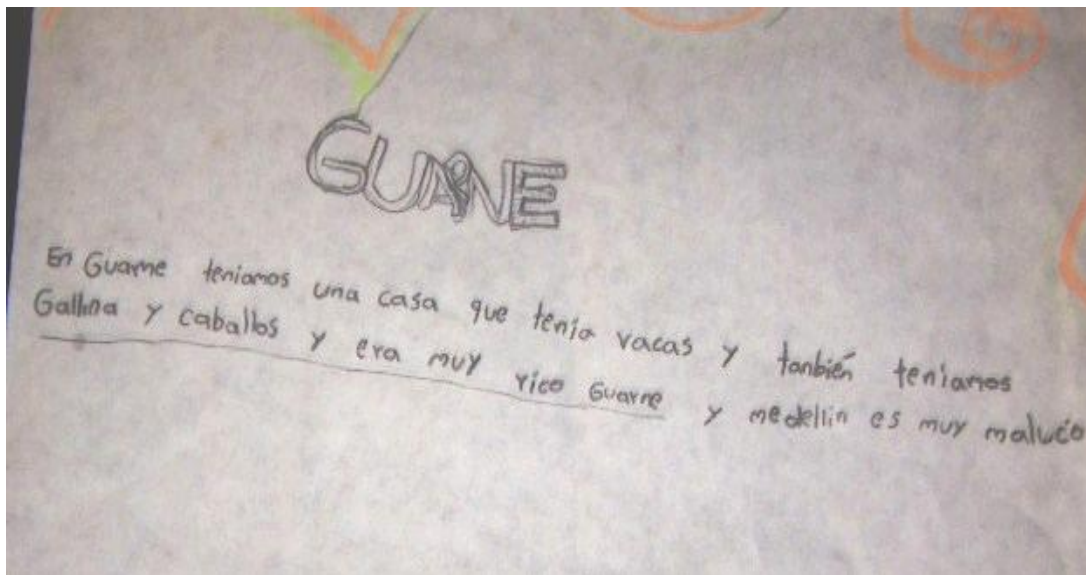 GUARNE
En Guarne teniamos una casa que tenia vacas y tanbién teniamos
Gallina y caballos y era muy rico Guarne y medellin es muy maluco